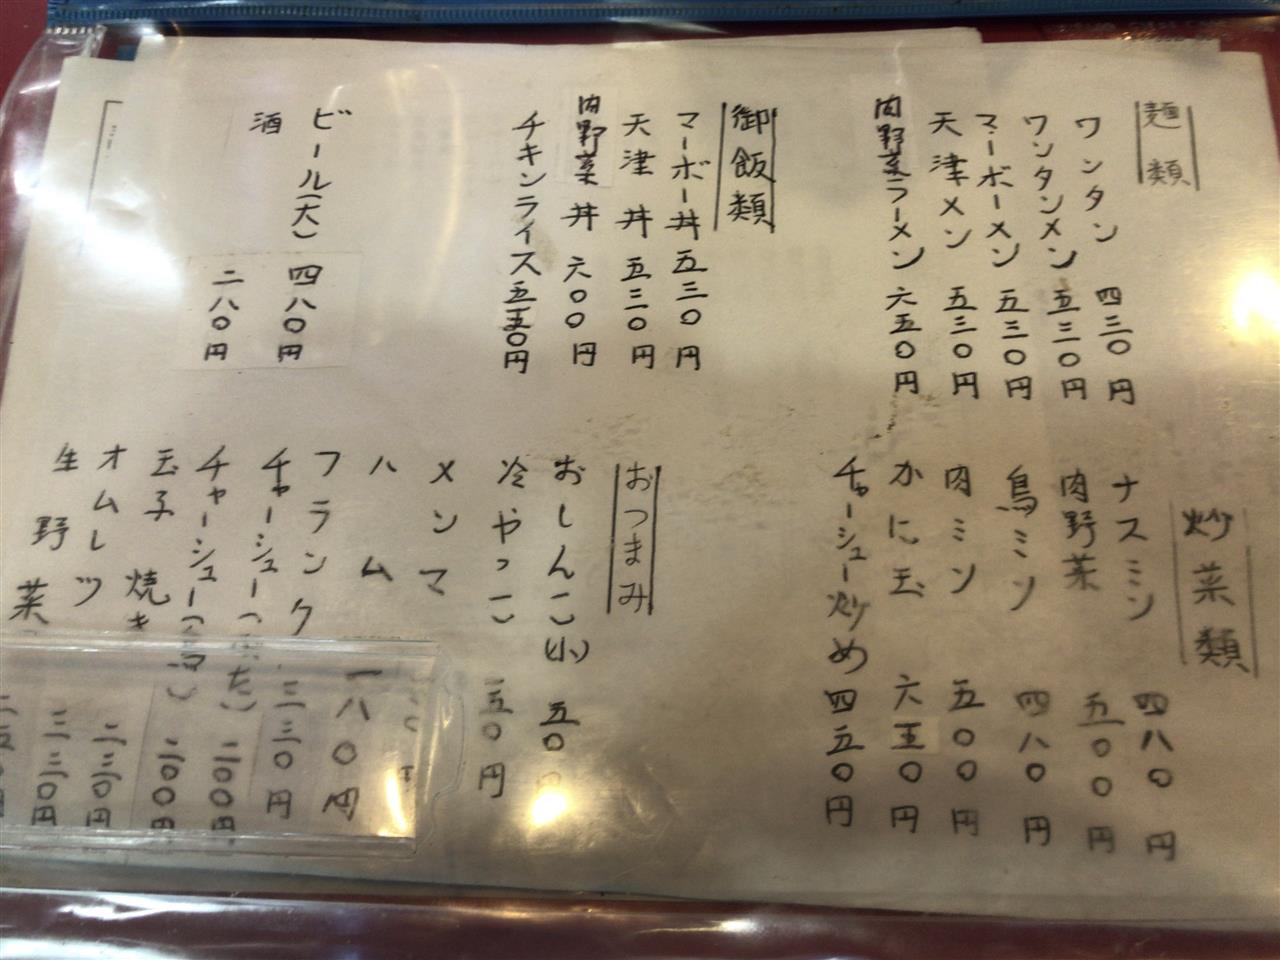 麺類
ワンタン 四三〇円
ワンタンメン 五三〇円
マーボーメン 五三〇円
天津メン 五三〇円
肉野菜ラーメン 六五〇円
御飯類
マーボー丼 五三〇円
天津丼 五三〇円
肉野菜丼 六〇〇円
チキンライス 五五〇円
ビール(大) 四八〇円
酒 二八〇円
炒菜類
ナスミソ 四八〇円
肉野菜 五〇〇円
鳥ミソ 四八〇円
肉ミソ 五〇〇円
かに玉 六五〇円
チャーシュー炒め 四五〇円
おつまみ
おしんこ(小) 五〇
冷やっこ 円
メンマ
ハム 一八〇円
フランク 三三〇円
チャーシュー
チャーシュー
玉子焼き
オムレツ
生野菜